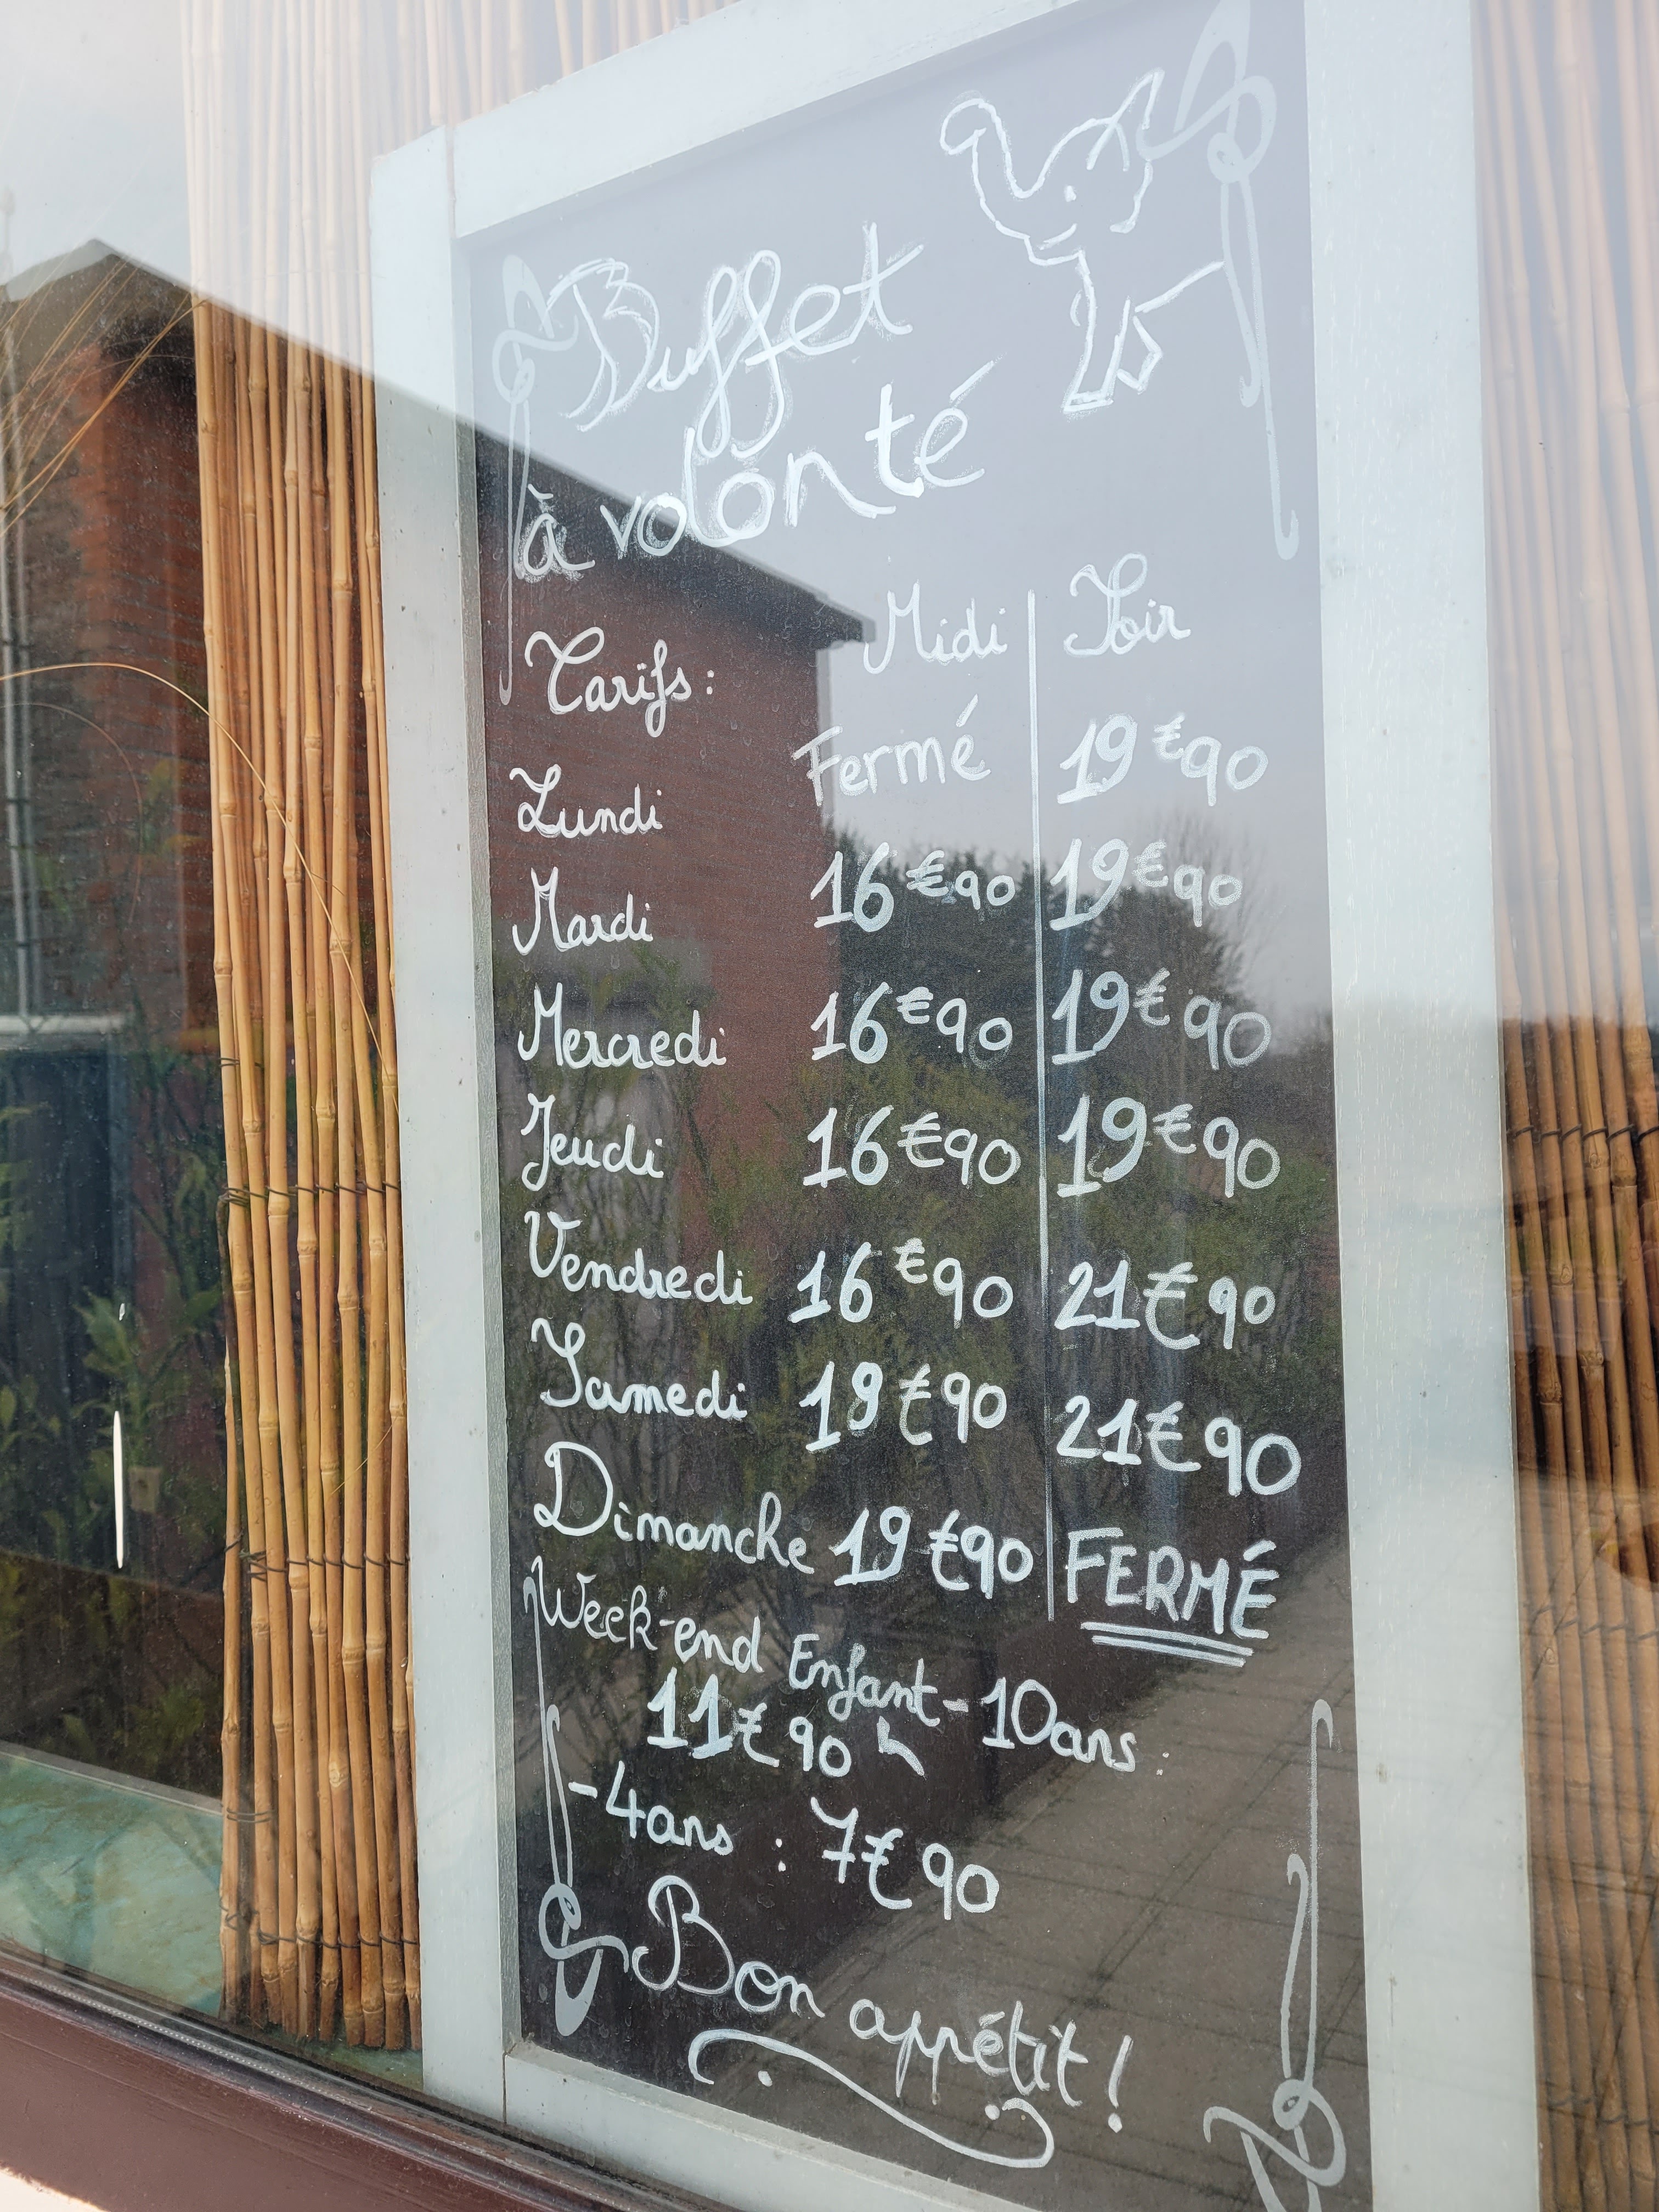 Buffet
à volonté
Tarifs : Midi Soir
Lundi Fermé 19€90
Mardi 16€90 19€90
Mercredi 16€90 19€90
Jeudi 16€90 19€90
Vendredi 16€90 21€90
Samedi 19€90 21€90
Dimanche 19€90 FERMÉ
Week-end Enfant -10ans :
11€90
-4ans : 7€90
Bon appétit !